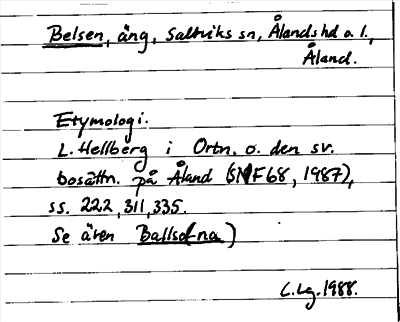 Belsen, äng, Saltviks sn, Ålands hd o. l.,
Åland.
Etymologi.
L. Hellberg i Ortn. o. den sv.
bosättn. på Åland (SNF 68, 1987),
ss. 222, 311, 335.
Se även
C.Lg. 1988.